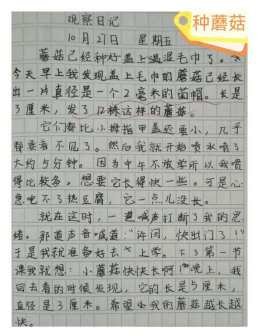 种蘑菇
观察日记
10月27日 星期五
蘑菇已经种好盖上湿湿毛巾了。
今天早上我发现盖上毛巾的蘑菇已经长
出一片直径是一个2毫米的菌帽。长是
3厘米,发了12株这样的蘑菇。
它们要比小拇指甲盖还要小,几乎
都要看不见了。然后我就开始喷水喷了
大约5分钟。因为中午不放学所以我喷
得比较多。想要它长得快一些。可是心
急吃不了热豆腐,它一点儿没长。
就在这时,一道喊声打断了我的思
绪。那道声音喊道:"许闰,快出门了!"
于是我就准备好去上学。下了第一节
课我就想:小蘑菇快快长啊!晚上,我
回去看的时候发现,它的长是5厘米,
直径是3厘米。希望我的蘑菇越长越
快。